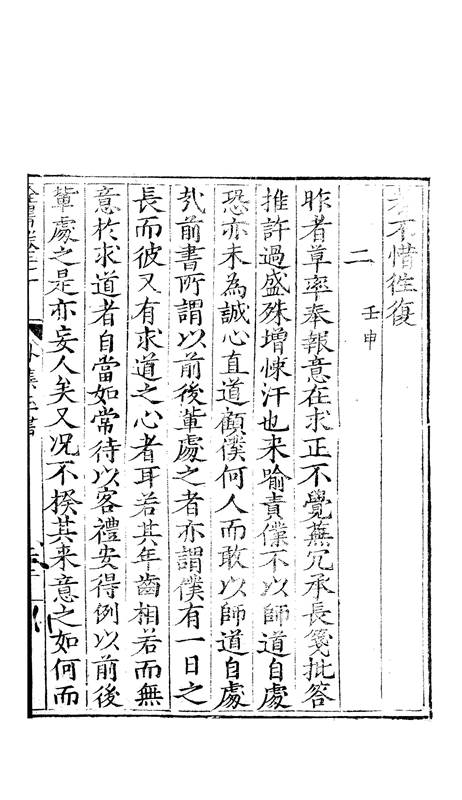 者不惜往復
二 壬申
昨者草率奉報意在求正不覺蕪冗承長箋批答
推許過盛殊增悚汗也来喻責僕不以師道自處
恐亦未為誠心直道顧僕何人而敢以師道自處
㢤前書所謂以前後輩處之者亦謂僕有一日之
長而彼又有求道之心者耳若其年齒相若而無
意於求道者自當如常待以客禮安得例以前後
輩處之是亦妄人矣又况不揆其来意之如何而
外集五書